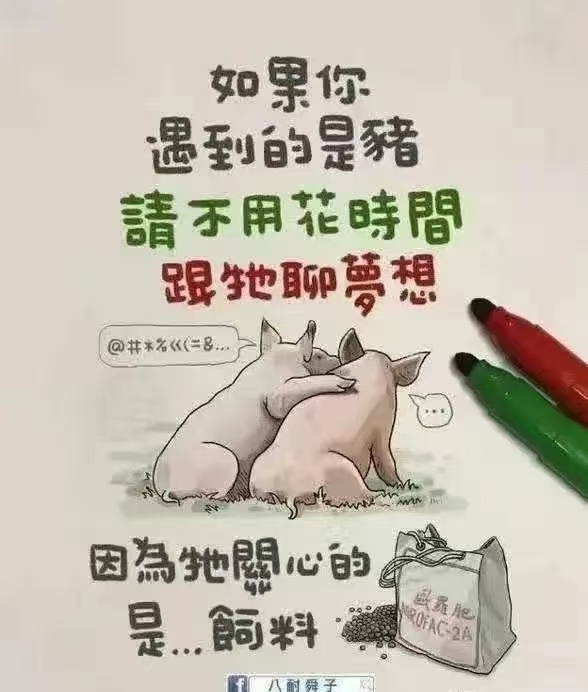 如果你
遇到的是豬
請不用花時間
跟牠聊夢想
@#*%<<(=&...
...
因為牠關心的
是...飼料
歐羅肥
UROFAC-2A
f 八耐舜子